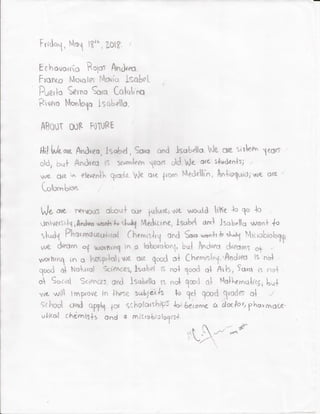 Friday, May 18th, 2018.
Echavarria Rojas Andrea
Franco Morales Maria Isabel
Puerta Serna Sara Catalina
Risno Montoya Isabella.
ABOUT OUR FUTURE
Hi! We are Andrea, Isabel, Sara and Isabella. We are sixteen years
old, but Andrea is seventeen years old. We are students;
we are in eleventh grade. We are from Medellín, Antioquia; we are
Colombian.
We are nervous about our future, we would like to go to
university, Andrea wants to study Medicine, Isabel and Isabella want to
study Pharmaceutical Chemistry and Sara wants to study Microbiology
we dream of working in a laboratory, but Andrea dreams of
working in a hospital; we are good at Chemistry. Andrea is not
good at Natural Sciences, Isabel is not good at Arts, Sara is not
at Social Sciences, and Isabella is not good at Mathematics, but
we will improve in these subjects to get good grades at
school and apply for scholarships to become a doctor, pharmace-
utical chemists and a microbiologist.